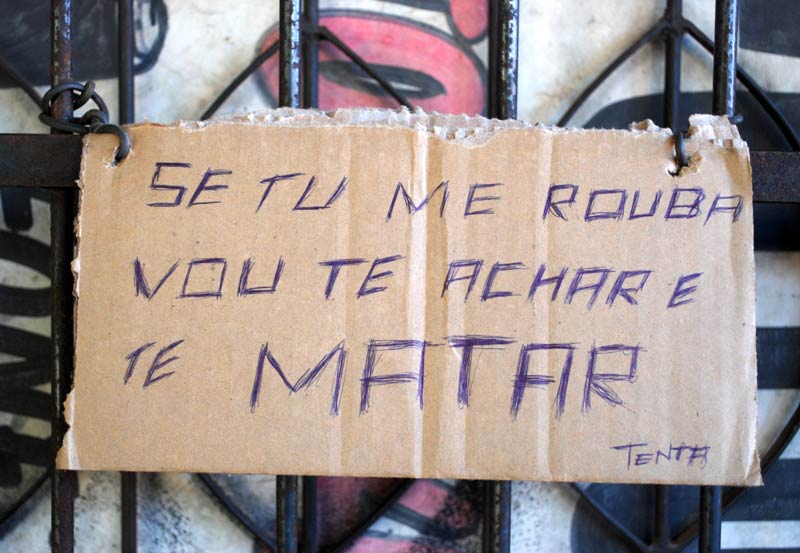 SE TU ME ROUBA
VOU TE ACHAR E
TE MATAR
TENTA